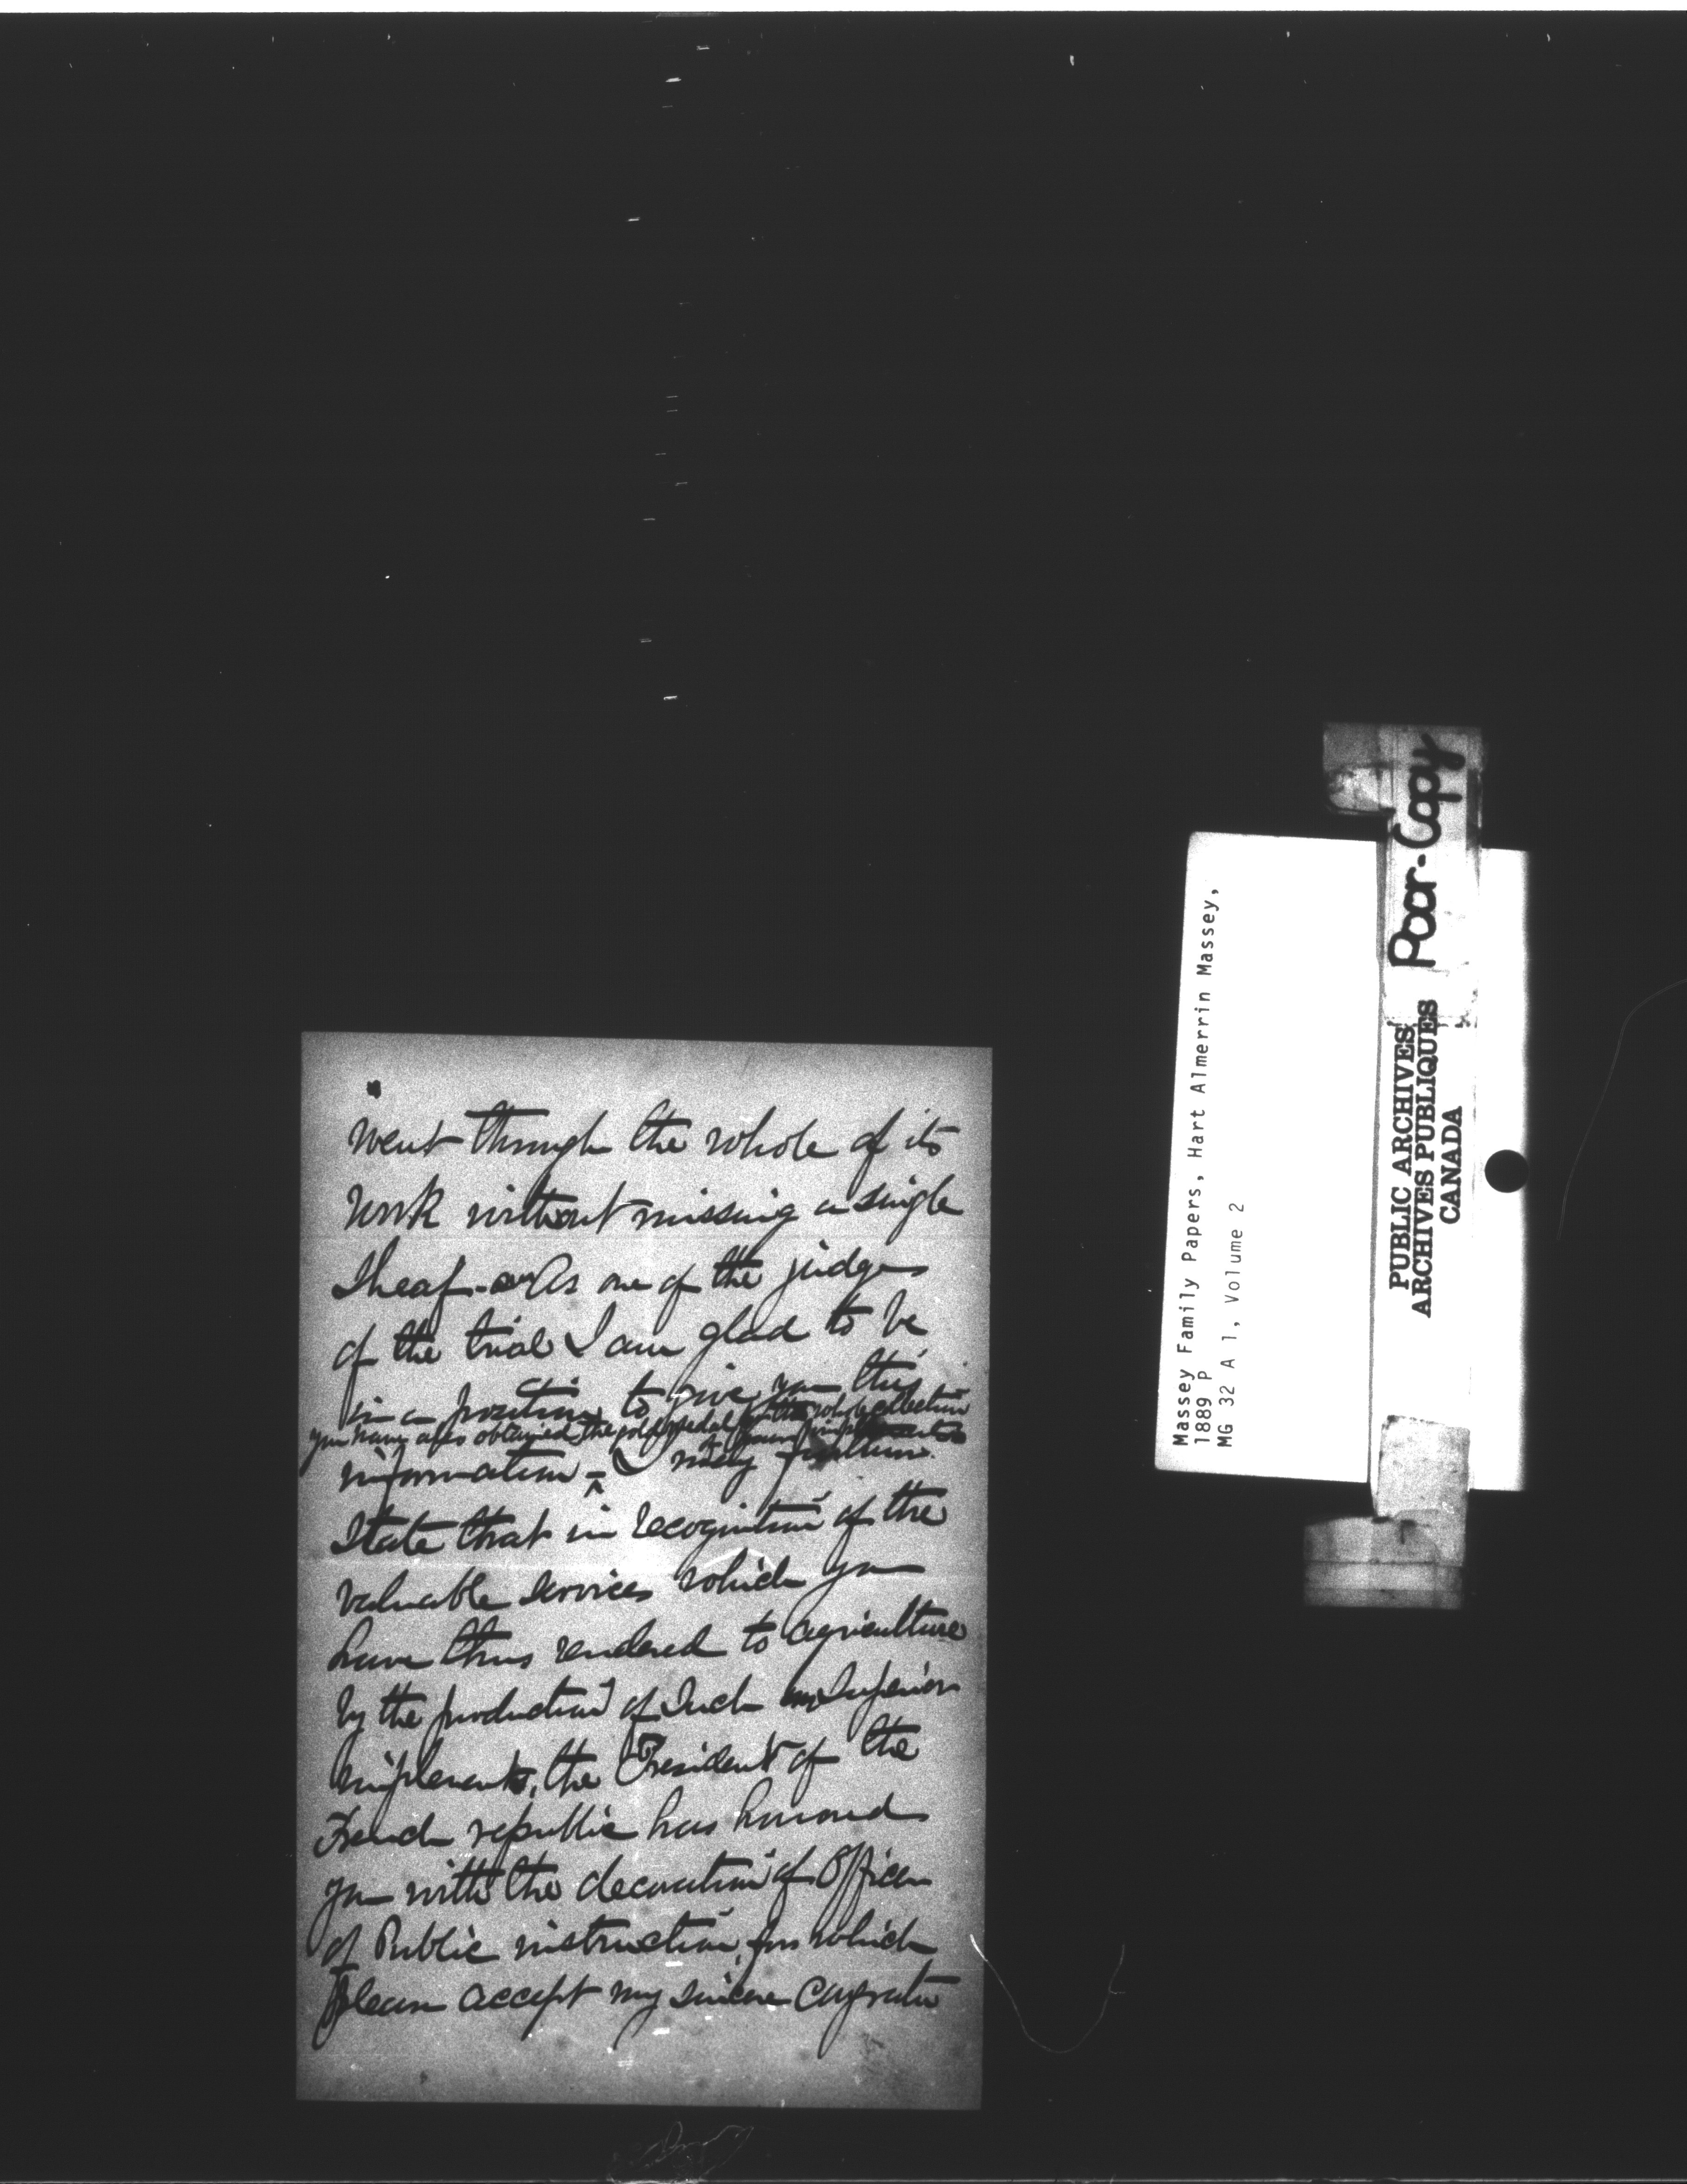 went through the whole of its
work without missing a single
Sheaf. As one of the judges
of the trial I am glad to be
in a position to give you this
you have also obtained the gold medal for the whole collection
of your implements
information - I may further
State that in recognition of the
valuable services which you
have thus rendered to agriculture
by the production of Such Superior
implements, the President of the
French republic has honored
you with the decoration of Officer
of Public instruction, for which
please accept my sincere congratu
Massey Family Papers, Hart Almerrin Massey,
1889 P
MG 32 A 1, Volume 2
PUBLIC ARCHIVES
ARCHIVES PUBLIQUES
CANADA
Poor-Copy